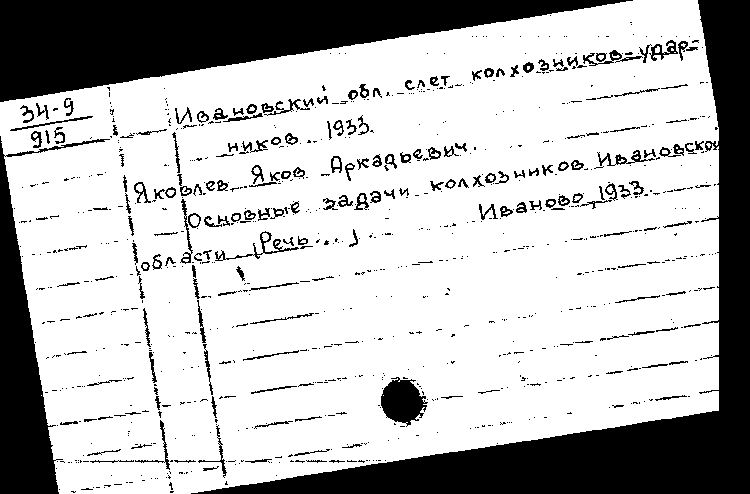 34-9
915
Ивановский обл. слет колхозников-удар-
ников. 1933.
Яковлев, Яков Аркадьевич.
Основные задачи колхозников Ивановской
области [Речь...].
Иваново, 1933.